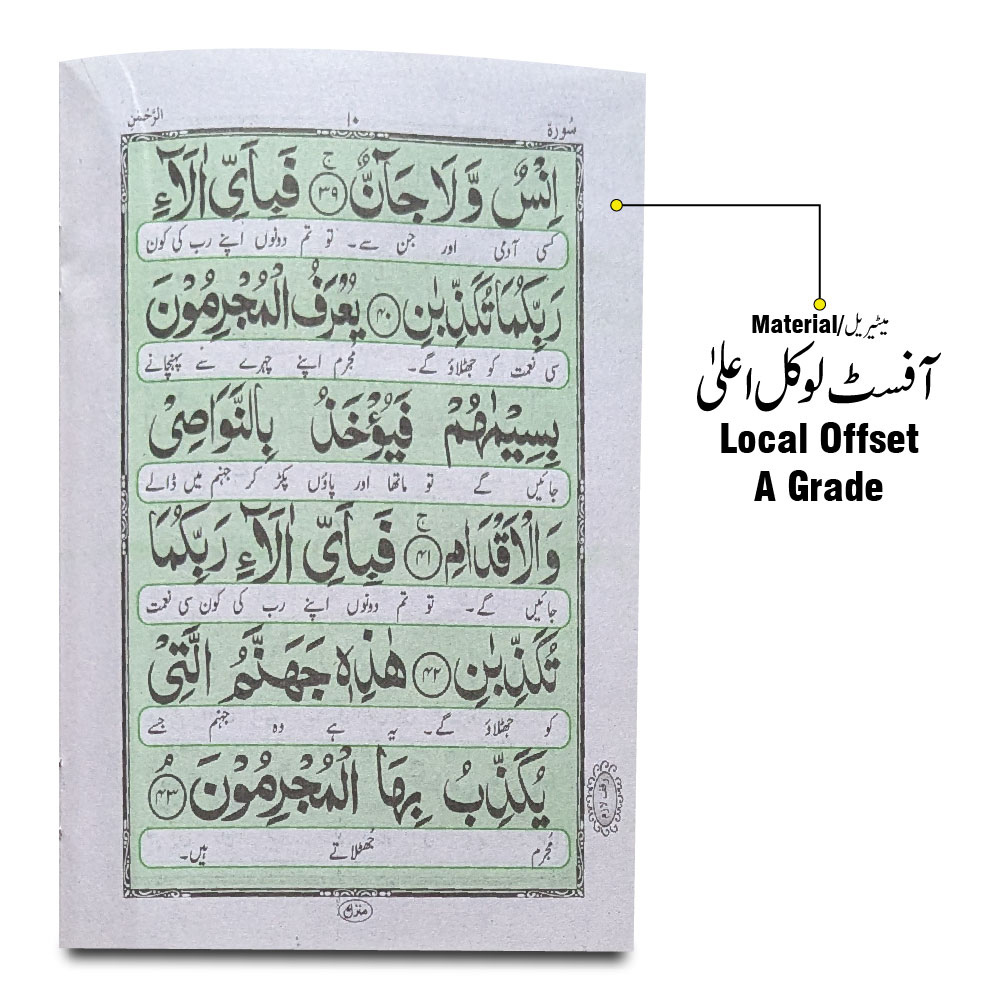 سُورة ۱۰ الرَّحْمٰن
اِنْسٌ وَّلَا جَآنٌّ ﴿۳۹﴾ ۚ فَبِاَيِّ اٰلَآءِ
کسی آدمی اور جن سے۔ تو تم دونوں اپنے رب کی کون
رَبِّكُمَا تُكَذِّبٰنِ ﴿۴۰﴾ يُعْرَفُ الْمُجْرِمُوْنَ
سی نعمت کو جھٹلاؤ گے۔ مُجرم اپنے چہرے سے پہنچانے
بِسِيْمٰهُمْ فَيُؤْخَذُ بِالنَّوَاصِيْ
جائیں گے تو ماتھا اور پاؤں پکڑ کر جہنم میں ڈالے
وَالْاَقْدَامِ ﴿۴۱﴾ ۚ فَبِاَيِّ اٰلَآءِ رَبِّكُمَا
جائیں گے۔ تو تم دونوں اپنے رب کی کون سی نعمت
تُكَذِّبٰنِ ﴿۴۲﴾ هٰذِهٖ جَهَنَّمُ الَّتِيْ
کو جھٹلاؤ گے۔ یہ ہے وہ جہنم جسے
يُكَذِّبُ بِهَا الْمُجْرِمُوْنَ ﴿۴۳﴾ ۘ
مُجرم جُھٹلاتے ہیں۔
وقف لازم
Material/میٹیریل
آفسٹ لوکل اعلیٰ
Local Offset
A Grade